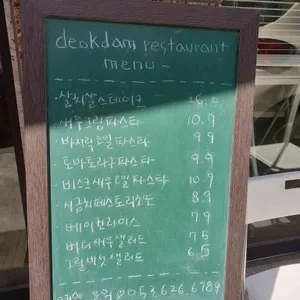 deokdam restaurant
menu -
· 살치살스테이크 26.0
· 새우크림파스타 10.9
· 바지락오일파스타 9.9
· 토마토라구파스타 9.9
· 비스크새우오일파스타 10.9
· 시금치페스토리조또 8.9
· 베이컨라이스 7.9
· 버터새우샐러드 7.5
· 그릴버섯샐러드 6.5
053.626.6784